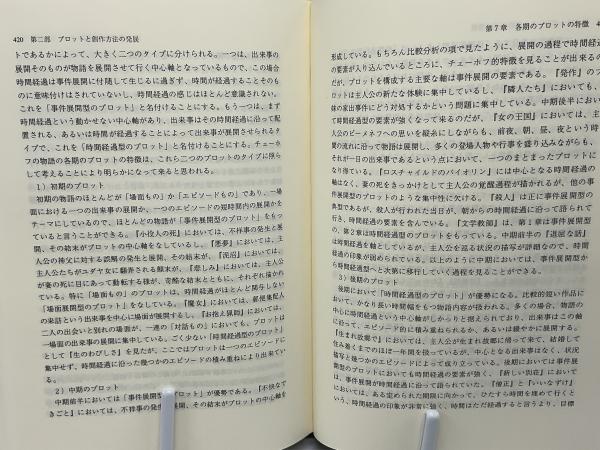 420　第二部　プロットと創作方法の発展
トであるかによって、大きく二つのタイプに分けられる。一つは、出来事の
展開そのものが物語を展開させて行く中心軸となっているもので、この場合
時間経過は事件展開に付随して生じるに過ぎず、時間が経過することそのも
のに意味付けはされていないし、時間経過の感じはほとんど意識されない。
これを「事件展開型のプロット」と名付けることにする。もう一つは、まず
時間経過という動かせない中心軸があり、出来事はその時間経過に沿って配
置される、あるいは時間が経過することによって出来事が展開させられるタ
イプで、これを「時間経過型のプロット」と名付けることにする。チェーホ
フの物語の各期のプロットの特徴は、これら二つのプロットのタイプに限ら
して考えることにより明らかになって来ると思われる。
1）初期のプロット
初期の物語のほとんどが「場面もの」か「エピソードもの」であり、一場
面における一つの出来事の展開か、一つのエピソードの短時間内の展開かを
テーマにしているので、ほとんどの物語が「事件展開型のプロット」をもっ
ていると言うことができる。『小役人の死』においては、不祥事の発生と展
開、その結末がプロットの中心軸をなしているし、『悪夢』においては、主
人公の神父に対する誤解の発生と展開、その結末が、『泥沼』においては、
主人公たちがユダヤ女に翻弄される顛末が、『悲しみ』においては、主人公
が妻の死に目にあって動転する様が、奇酷な結末とともに、それぞれ描かれ
ている。特に「場面もの」のプロットは、時間経過がほとんど関与しない
「場面展開型のプロット」をなしている。『魔女』においては、郵便集配人
の来訪という出来事を中心に場面が展開するし、『お抱え猟師』においては、
二人の出会いと別れの場面が、一連の「対話もの」においても、プロットは
一場面の出来事の展開に集中している。ごく少ない「時間経過型のプロット」
として『生のわびしさ』を見たが、ここではプロットは一つのエピソードに
集中せず、時間経過に沿った幾つかのエピソードの積み重ねにより出来てい
る。
2）中期のプロット
中期前半においては「事件展開型のプロット」が優勢である。『不快なで
きごと』においては、不祥事の発生と展開、その結末がプロットの中心軸を
第7章　各期のプロットの特徴
形成している。もちろん比較分析の項で見たように、展開の過程で時間経過
の要素が入り込んでいるところに、チェーホフ的特徴を見ることが出来るの
だが、プロットを構成する主要な軸は事件展開の要素である。『発作』のプ
ロットは主人公の新たな体験に集中しているし、『隣人たち』においても、
妹の家出事件にどう対処するかという問題に集中している。中期後半におい
て時間経過型の要素が強くなって来るのだが、『女の王国』においては、主
人公のピーメノフへの思いを縦糸にしながらも、前夜、朝、昼、夜という時
間の流れに沿って物語は展開し、多くの登場人物や行事を盛り込みながらも、
それが一日の出来事であるという点において、一つのまとまったプロットに
なり得ている。『ロスチャイルドのバイオリン』には中心となる時間経過の
軸はなく、妻の死をきっかけとして主人公の覚醒過程が描かれるが、他の事
件展開型のプロットのような集中性に欠ける。『殺人』は正に事件展開型の
典型であるが、殺人が行われた当日が、朝からの時間経過に沿って語られて
行き、時間経過の要素を含んでいる。『文学教師』は、第1章は事件展開型
の、第2章は時間経過型のプロットをもっている。中期前半の『退屈な話』
は時間経過を軸としているが、主人公を巡る状況の描写が詳細なので、時間
経過の印象が弱められている。以上のように中期においては、事件展開型か
ら時間経過型へと次第に移行していく過程を見ることができる。
3）後期のプロット
後期において「時間経過型のプロット」が優勢になる。比較的短い作品に
おいて、かなり長い時間幅をもつ物語内容が扱われる。多くの場合、物語の
中心に時間経過という中心軸がしっかりと据えられており、出来事はこの軸
に沿って、エピソード的に積み重ねられるか、あるいは緩やかに展開する。
『生まれ故郷で』においても、主人公が生まれ故郷に帰って来て、結婚して
住み着くまでのほぼ一年間を扱っているが、中心となる出来事はなく、状況
描写と幾つかのエピソードによって成り立っている。後期においては事件展
開型のプロットにおいても時間経過の要素が強く、『新しい別荘』において
は、事件展開が時間経過に沿って語られていた。『僧正』と『いいなずけ』
においては、ある定められた期間に向かって、ひたすら時間を埋めて行くと
いう、時間経過の印象が非常に強く、時間はただ経過すると言うより、目標